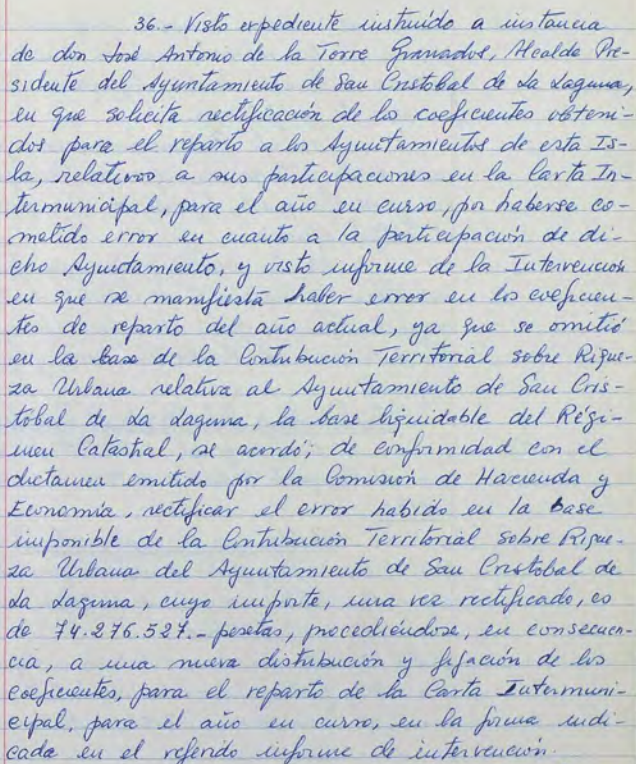 36.- Visto expediente instruído a instancia
de don José Antonio de la Torre Granados, Alcalde Pre-
sidente del Ayuntamiento de San Cristobal de La Laguna,
en que solicita rectificación de los coeficientes obteni-
dos para el reparto a los Ayuntamientos de esta Is-
la, relativos a sus participaciones en la Carta In-
termunicipal, para el año en curso, por haberse co-
metido error en cuanto a la participación de di-
cho Ayuntamiento, y visto informe de la Intervención
en que se manifiesta haber error en los coeficien-
tes de reparto del año actual, ya que se omitió
en la base de la Contribución Territorial sobre Rique-
za Urbana relativa al Ayuntamiento de San Cris-
tobal de La Laguna, la base liquidable del Régi-
men Catastral, se acordó; de conformidad con el
dictamen emitido por la Comisión de Hacienda y
Economía, rectificar el error habido en la base
imponible de la Contribución Territorial sobre Rique-
za Urbana del Ayuntamiento de San Cristobal de
La Laguna, cuyo importe, una vez rectificado, es
de 74.276.527.- pesetas, procediéndose, en consecuen-
cia, a una nueva distribución y fijación de los
coeficientes, para el reparto de la Carta Intermuni-
cipal, para el año en curso, en la forma indi-
cada en el referido informe de intervención.